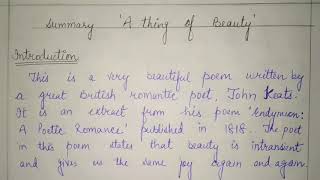 Summary 'A thing of Beauty'
Introduction
This is a very beautiful poem written by
a great British romantic poet, John Keats.
It is an extract from his poem 'Endymion:
A Poetic Romance' published in 1818. The poet
in this poem states that beauty is intransient
and gives us the same joy again and again.